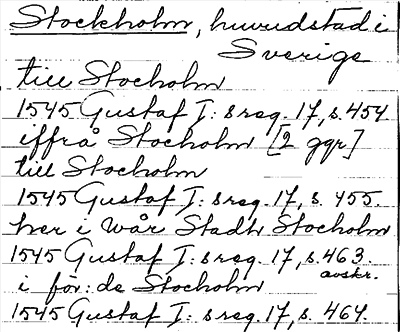 Stockholm, huvudstad i
Sverige
till Stocholm
1545 Gustaf I: s reg. 17, s. 454
iffrå Stocholm [2 ggr]
till Stocholm
1545 Gustaf I: s reg. 17, s. 455.
her i wår Stadh Stocholm
1545 Gustaf I: s reg. 17, s. 463.
avskr.
i för: de Stocholm
1545 Gustaf I: s reg. 17, s. 464.